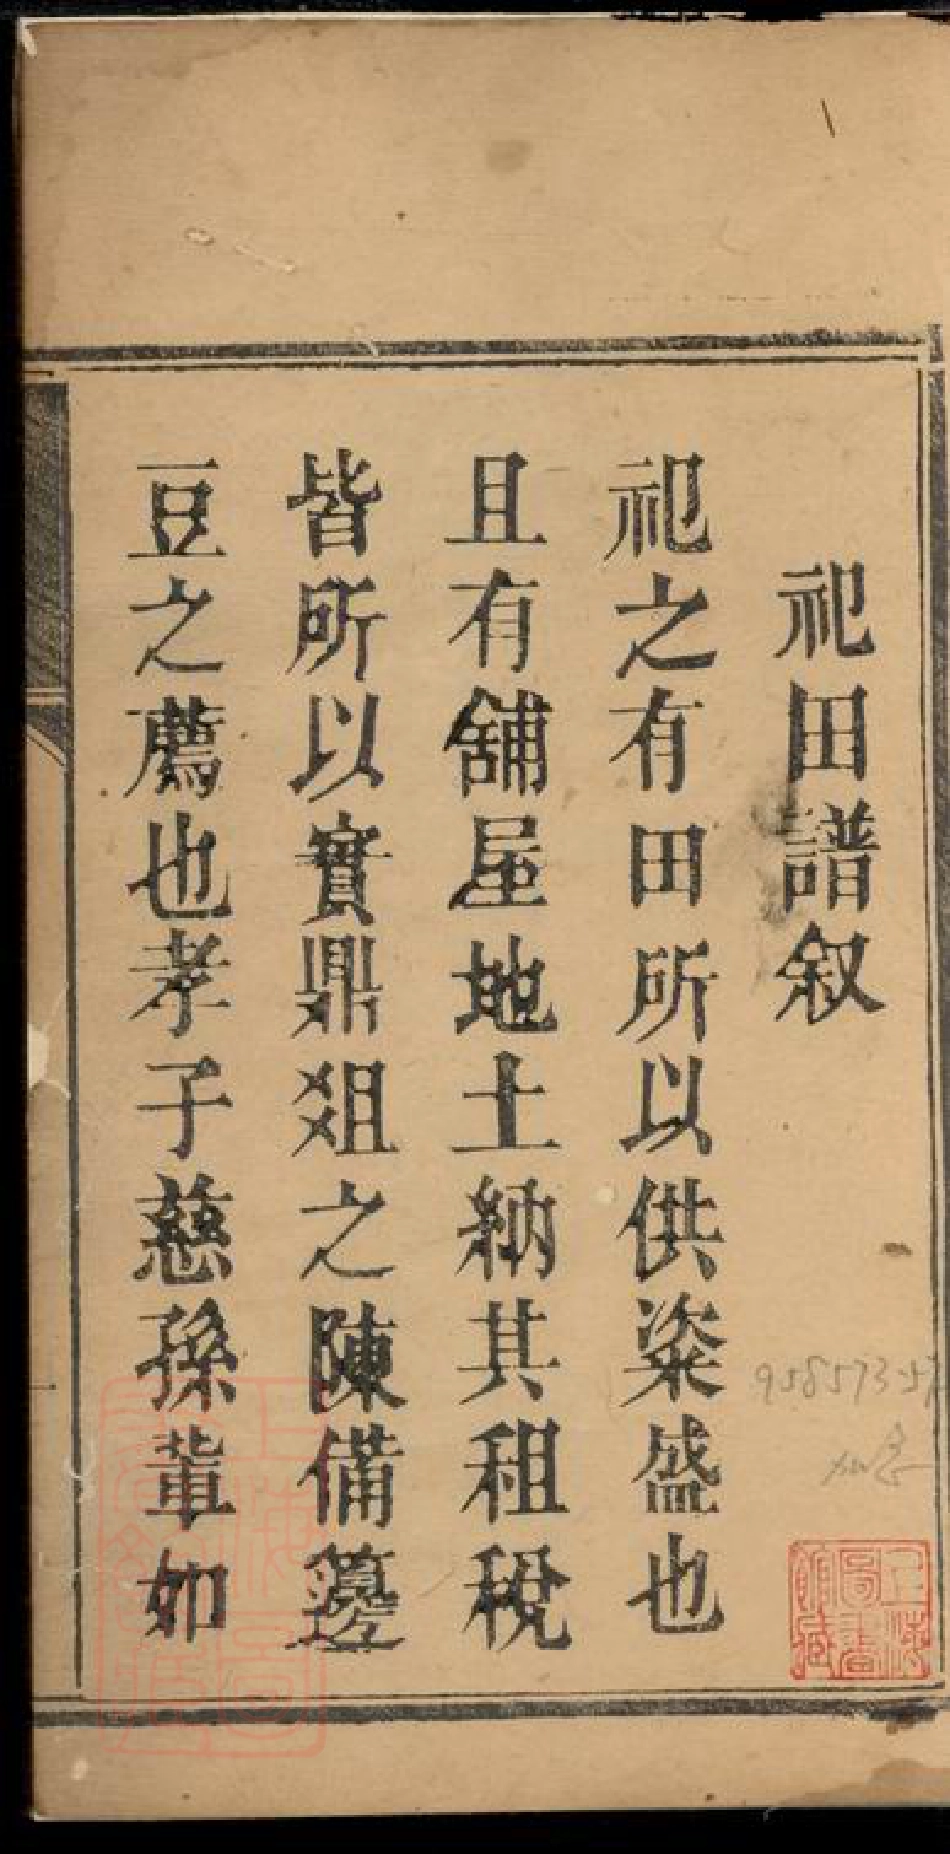 祀田譜叙
祀之有田所以供粢盛也
且有舖屋地土納其租稅
皆所以實鼎爼之陳備籩
豆之薦也孝子慈孫軰如
958573-57
上海圖書館藏